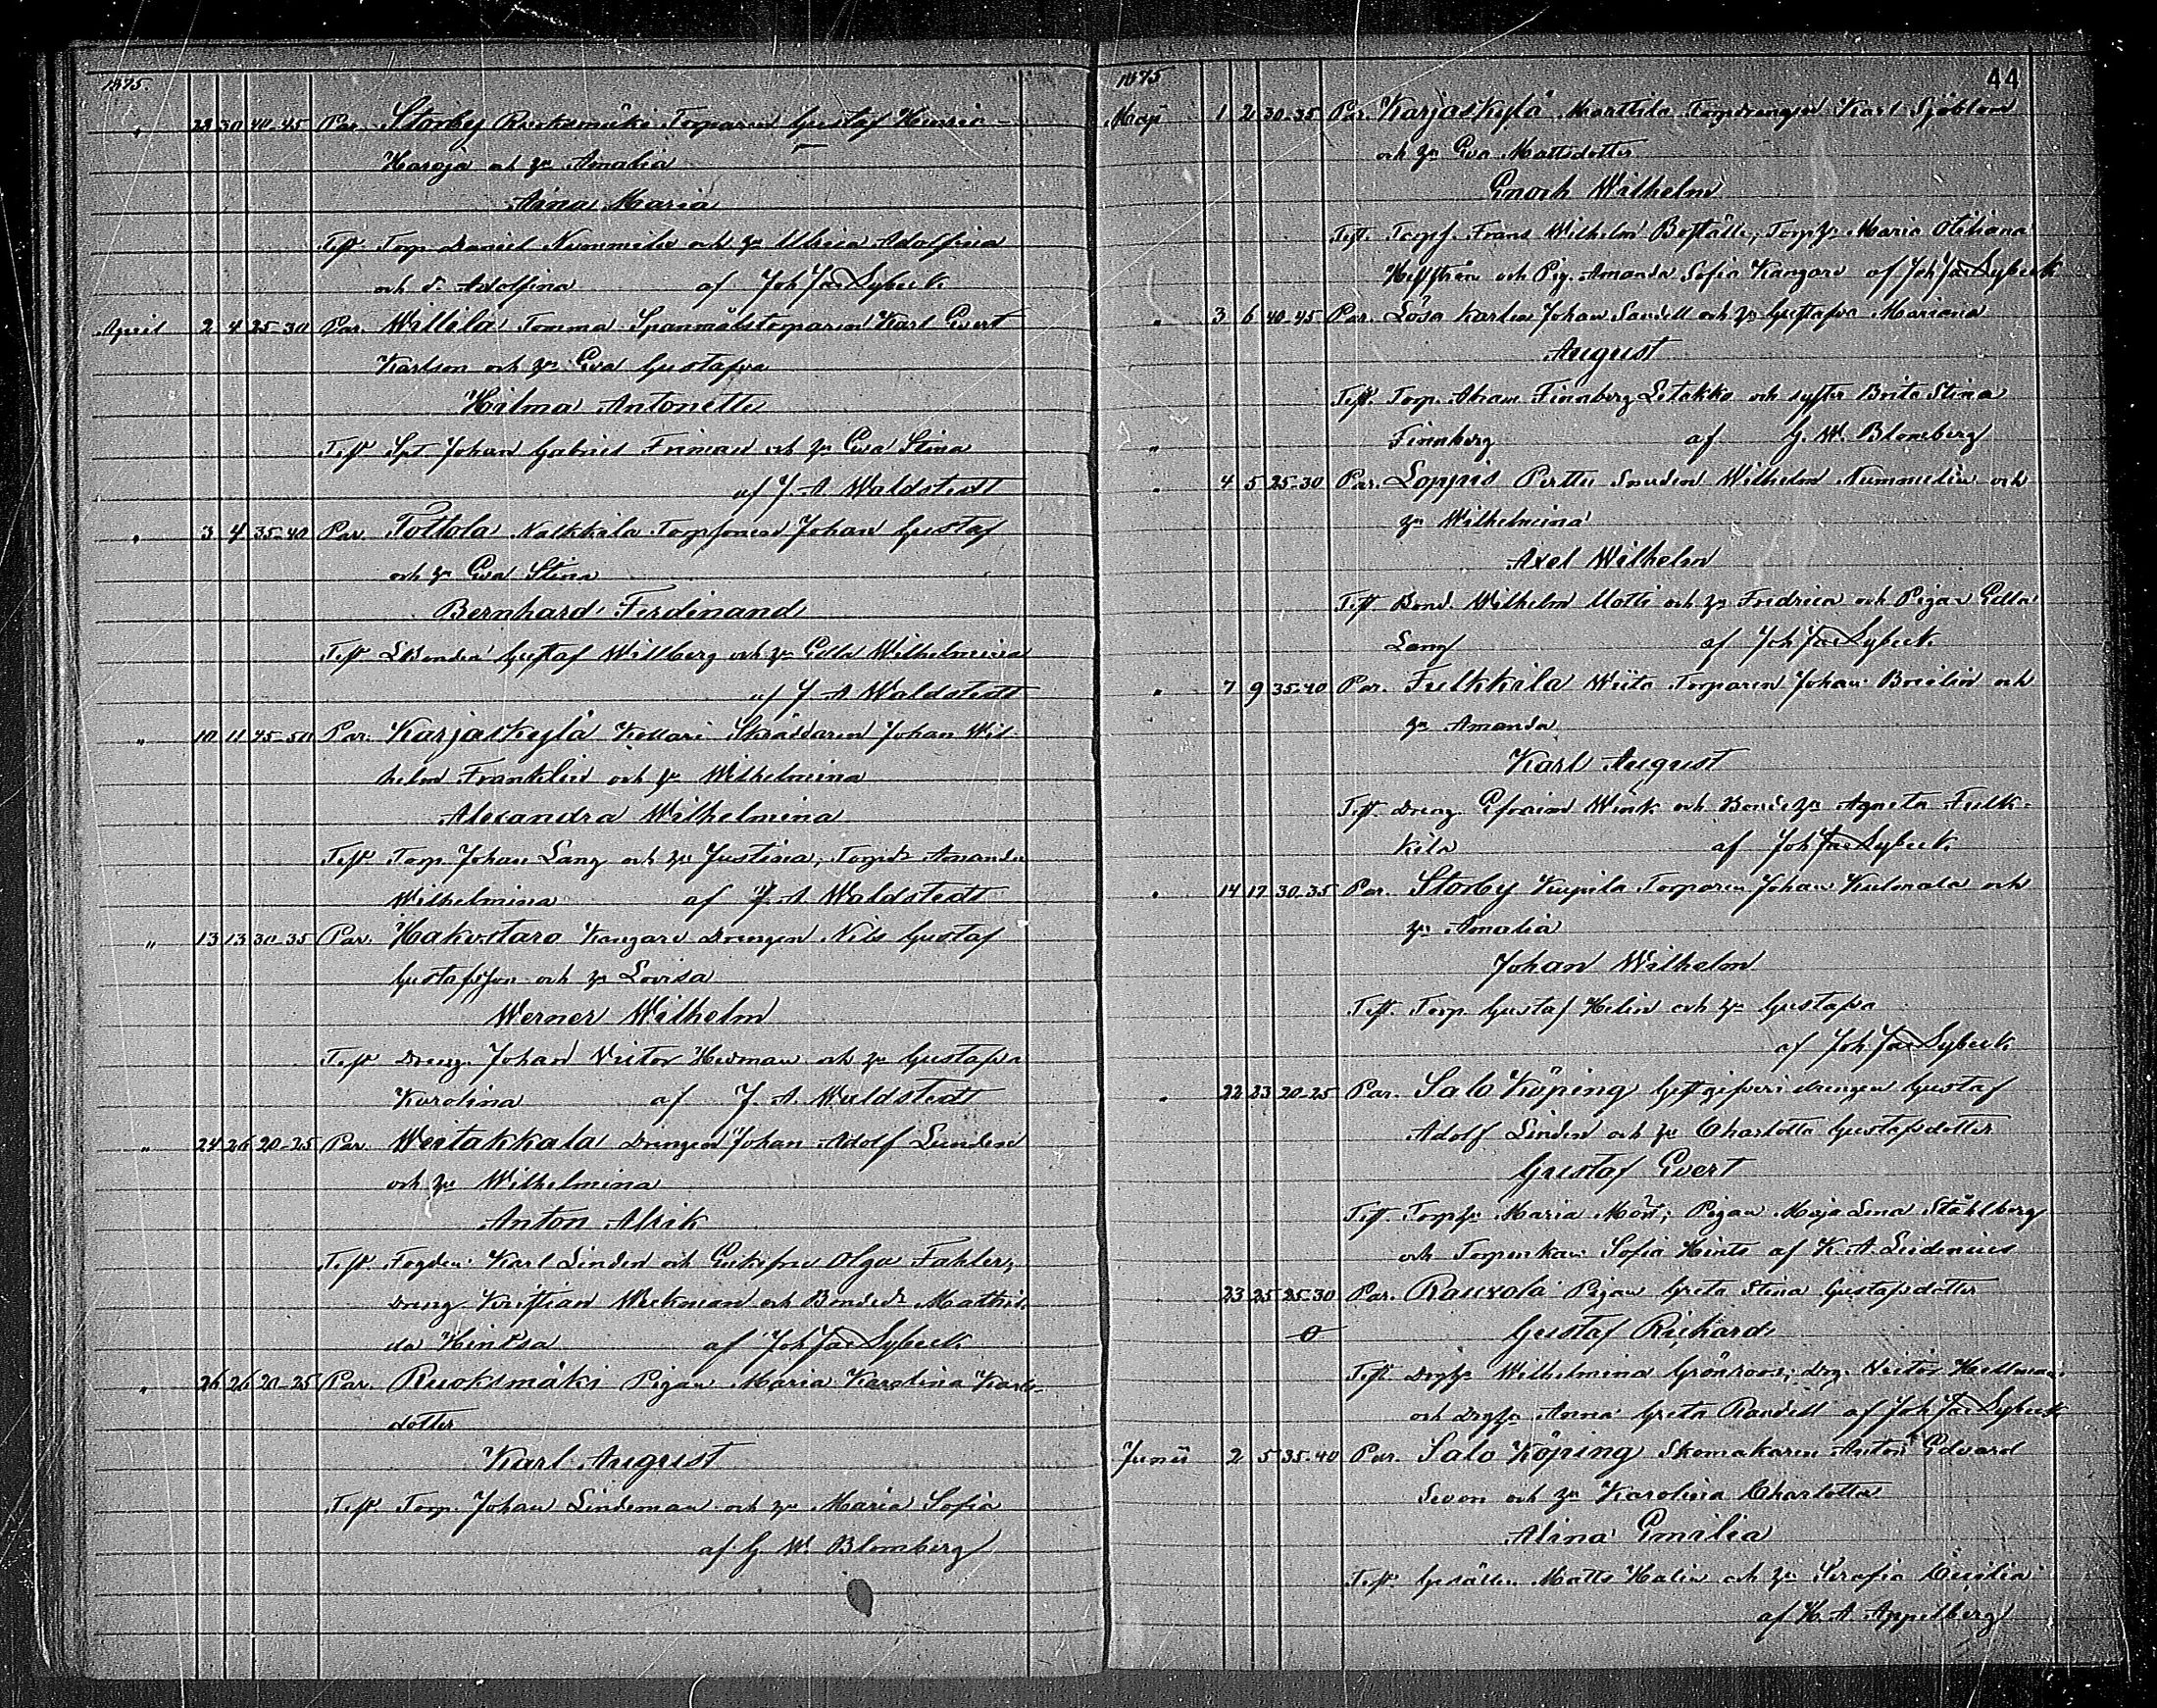 1875.
" 28 30 40-45 Par. Storby Ruoksmäki Torparen Gustaf Henric
Haroja och hu Amalia
Aina Maria
Test. Torp. Daniel Nummelin och hu Ulrica Adolfina
och d. Adolfina af Joh Jac Lybeck.
April 2 4 25-30 Par. Willilä Tomma Spanmålstorparen Karl Evert
Karlson och hu Eva Gustafva
Hilma Antonette
Test Spt Johan Gabriel Friman och hu Eva Stina
af J. A. Waldstedt
" 3 4 35-40 Par. Tottola Kalkkila Torpsonen Johan Gustaf
och hu Eva Stina
Bernhard Ferdinand
Test LBonden Gustaf Willberg och hu Edla Wilhelmina
af J A Waldstedt
" 10 11 45-50 Par. Karjaskylä Kellari Skräddaren Johan Wil-
helm Franklin och hu Wilhelmina
Alexandra Wilhelmina
Test Torp. Johan Lang och hu Justina, Torpdr Amanda
Wilhelmina af J. A. Waldstedt
" 13 13 30-35 Par. Hakostaro Kangare Drengen Nils Gustaf
Gustafsson och hu Lovisa
Werner Wilhelm
Test Dreng. Johan Victor Hedman och hu Gustafva
Karolina af J. A. Waldstedt
" 24 26 20-25 Par. Weitakkala Drengen Johan Adolf Lunden
och hu Wilhelmina
Anton Alrik
Test. Fogden Karl Linden och Enkefru Olga Fahler,
Dreng Kristian Weckman och Bondedr Mathil-
da Hinksa af Joh Jac Lybeck.
" 26 26 20-25 Par. Ruoksmäki Pigan Maria Karolina Karls-
dotter
Karl August
Test. Torp. Johan Lindeman och hu Maria Sofia
af G W. Blomberg
1875 44
Maji 1 2 30-35 Par. Karjaskylä Marttila Torpdrengen Karl Sjöblom
och hu Eva Mattsdotter
Enoch Wilhelm
Test. Torps. Frans Wilhelm Boställe, Torphu Maria Otiliana
Hellstrén och Pig. Amanda Sofia Kangare af Joh Jac Lybeck
" 3 6 40-45 Par. Lösa karlen Johan Sandell och hu Gustafva Mariana
August
Test. Torp. Abram Finnberg Letakko och syster Brita Stina
" Finnberg af G. W. Blomberg
" 4 5 25-30 Par. Loppis Pertte Smeden Wilhelm Nummelin och
hu Wilhelmina
Axel Wilhelm
Test Bond. Wilhelm Uotti och hu Fredrica och Pigan Edla
Lang af Joh Jac Lybeck.
" 7 9 35-40 Par. Fulkkila Wiita Torparen Johan Brielin och
hu Amanda
Karl August
Test. Dreng. Efraim Wink och Bondehu Agneta Fulk-
kila af Joh Jac Lybeck.
" 14 17 30-35 Par. Storby Kupila Torparen Johan Kulmala och
hu Amalia
Johan Wilhelm
Test. Torp. Gustaf Helin och hu Gustafva
af Joh. Jac Lybeck.
" 22 23 20-25 Par. Salo Köping Gästgifveri drengen Gustaf
Adolf Linden och hu Charlotta Gustafsdotter
Gustaf Evert
Test. Torphu Maria Mört; Pigan Maja Lena Ståhlberg
och Torpenkan Sofia Hints af K. A. Leidenius
23 25 25-30 Par. Rauvola Pigan Greta Stina Gustafsdotter
Gustaf Richard
Test Drghu Wilhelmina Grönroos; drg. Victor Hellman
och drghu Anna Greta Randell af Joh Jac Lybeck
Junii 2 5 35-40 Par. Salo Köping Skomakaren Anton Edvard
Sevon och hu Karolina Charlotta
Alina Emilia
Test. Gesällen Matts Halin och hu Serafia Cecilia
af K. A. Appelberg